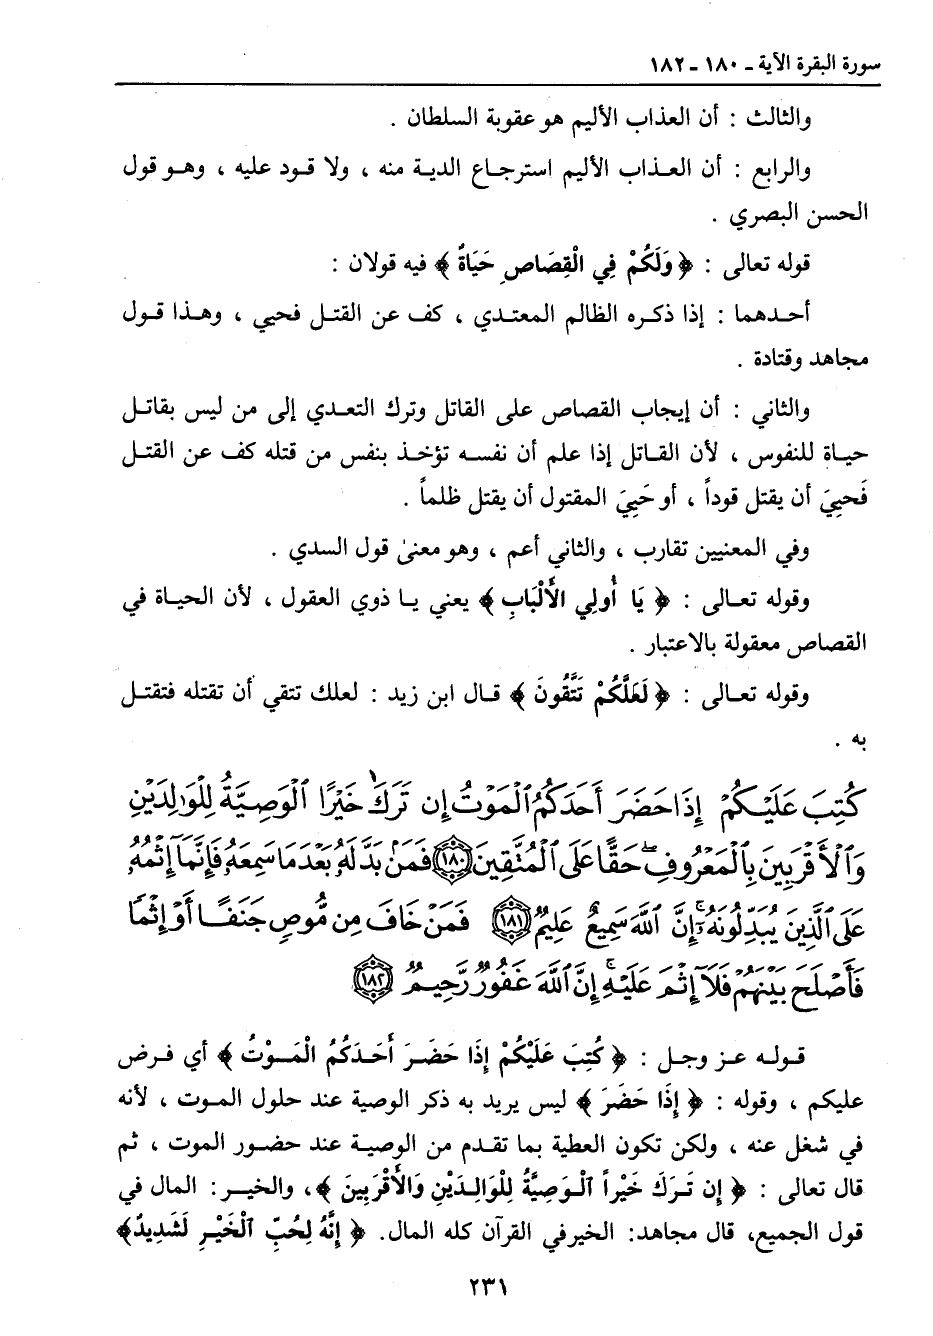 سورة البقرة الآية ـ ١٨٠ ـ ١٨٢
والثالث : أن العذاب الأليم هو عقوبة السلطان .
والرابع : أن العـذاب الأليم استرجـاع الدية منه ، ولا قـود عليه ، وهـو قول
الحسن البصري .
قوله تعالى : ﴿ وَلَكُمْ فِي الْقِصَاصِ حَيَاةٌ ﴾ فيه قولان :
أحـدهما : إذا ذكـره الظالم المعتـدي ، كف عن القتـل فحيي ، وهـذا قـول
مجاهد وقتادة .
والثاني : أن إيجاب القصاص على القاتل وترك التعدي إلى من ليس بقاتـل
حيـاة للنفوس ، لأن القـاتل إذا علم أن نفسـه تؤخـذ بنفس من قتله كف عن القتـل
فَحيِيَ أن يقتل قوداً ، أو حَيِيَ المقتول أن يقتل ظلماً .
وفي المعنيين تقارب ، والثاني أعم ، وهو معنىٰ قول السدي .
وقوله تعـالى : ﴿ يَا أُولِي الأَلْبَابِ ﴾ يعني يـا ذوي العقول ، لأن الحيـاة في
القصاص معقولة بالاعتبار .
وقوله تعـالى : ﴿ لَعَلَّكُمْ تَتَّقُونَ ﴾ قـال ابن زيـد : لعلك تتقي أن تقتله فتقتـل
به .
كُتِبَ عَلَيْكُمْ إِذَا حَضَرَ أَحَدَكُمُ ٱلْمَوْتُ إِن تَرَكَ خَيْرًا ٱلْوَصِيَّةُ لِلْوَٰلِدَيْنِ
وَٱلْأَقْرَبِينَ بِٱلْمَعْرُوفِۖ حَقًّا عَلَى ٱلْمُتَّقِينَ ﴿١٨٠﴾ فَمَنۢ بَدَّلَهُۥ بَعْدَ مَا سَمِعَهُۥ فَإِنَّمَآ إِثْمُهُۥ
عَلَى ٱلَّذِينَ يُبَدِّلُونَهُۥٓۚ إِنَّ ٱللَّهَ سَمِيعٌ عَلِيمٌ ﴿١٨١﴾ فَمَنْ خَافَ مِن مُّوصٍ جَنَفًا أَوْ إِثْمًا
فَأَصْلَحَ بَيْنَهُمْ فَلَآ إِثْمَ عَلَيْهِۚ إِنَّ ٱللَّهَ غَفُورٌ رَّحِيمٌ ﴿١٨٢﴾
قـولـه عـز وجـل : ﴿ كُتِبَ عَلَيْكُمْ إِذَا حَضَـرَ أَحَـدَكُمُ الْمَـوْتُ ﴾ أي فـرض
عليكم ، وقوله : ﴿ إِذَا حَضَرَ ﴾ ليس يريد به ذكر الوصية عند حلول المـوت ، لأنه
في شغل عنه ، ولكن تكون العطية بما تقدم من الوصيـة عند حضـور الموت ، ثم
قال تعالى : ﴿ إِن تَـرَكَ خَيْراً ٱلْـوَصِيَّةُ لِلْوَالِـدَيْنِ وَالأَقْرَبِينَ ﴾، والخيـر: المال في
قول الجميع، قال مجاهد: الخيرفي القرآن كله المال. ﴿ إِنَّهُ لِحُبِّ ٱلْخَيْرِ لَشَدِيدٌ﴾
٢٣١